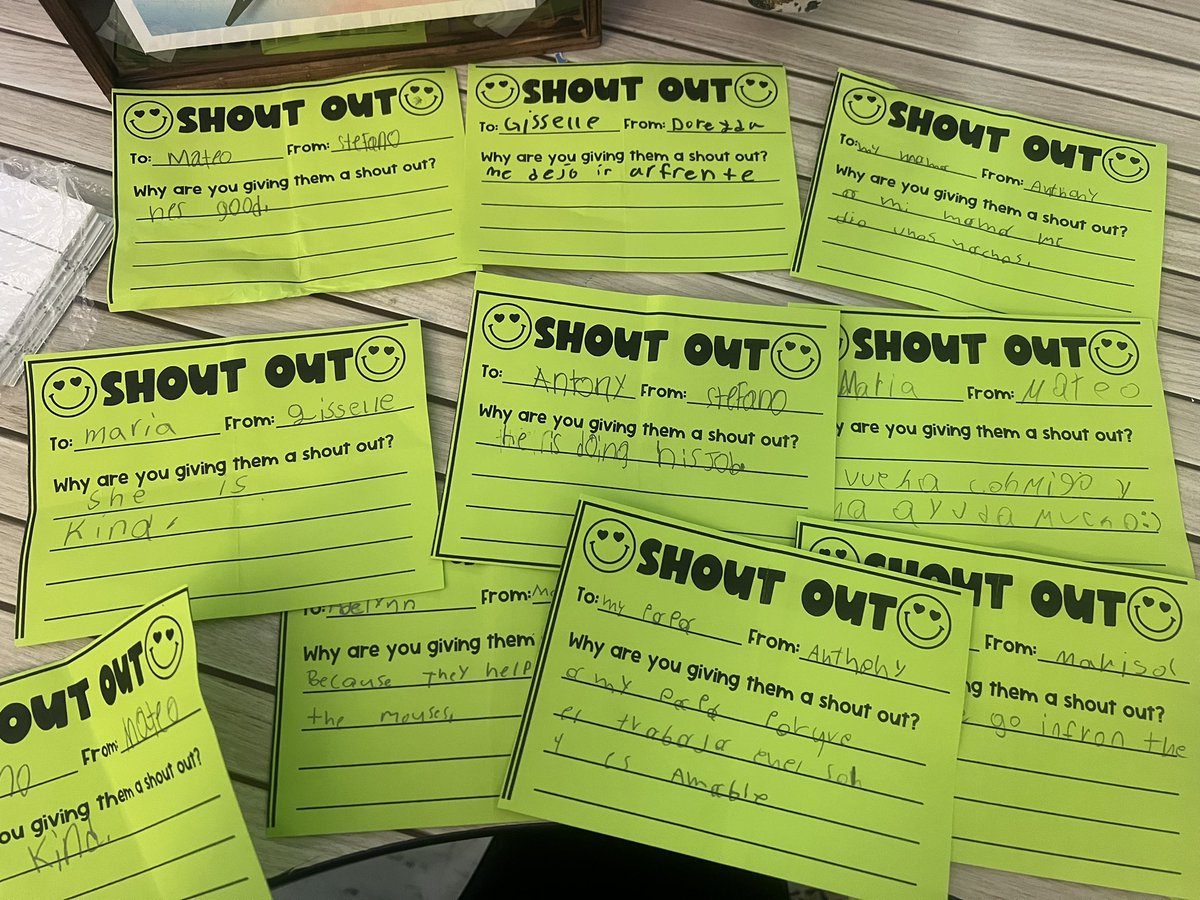 SHOUT OUT
To: Mateo From: Stefano
Why are you giving them a shout out?
her good.
SHOUT OUT
To: Gisselle From: Doreyda
Why are you giving them a shout out?
me dejo ir arfrente
SHOUT OUT
To: my mama From: Anthony
Why are you giving them a shout out?
a mi mama me
dio unos nachos.
SHOUT OUT
To: maria From: gisselle
Why are you giving them a shout out?
She is
Kind.
SHOUT OUT
To: Antony From: stefano
Why are you giving them a shout out?
he is doing his job
SHOUT OUT
Maria From: Mateo
are you giving them a shout out?
conmigo y
ayuda mucho:)
OUT
From: mateo
you giving them a shout out?
Kind.
To: From:
Why are you giving them
Because they help
the mouses.
SHOUT OUT
To: my papa From: Anthony
Why are you giving them a shout out?
a my papa porque
el trabaja en el sol
y es Amable
OUT
From: Marisol
giving them a shout out?
go infron the